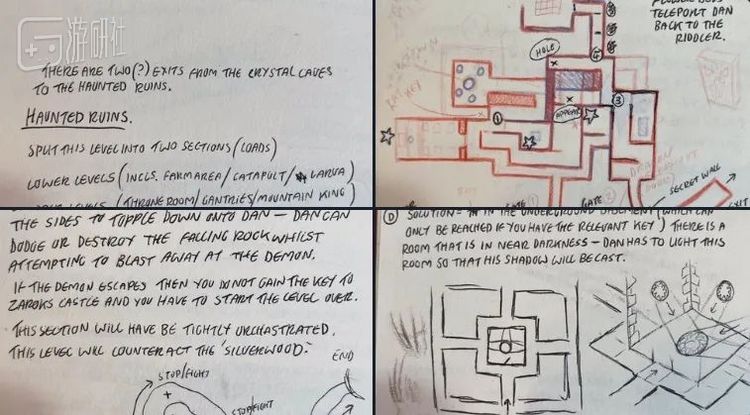 游研社
THERE ARE TWO(?) EXITS FROM THE CRYSTAL CAVES
TO THE HAUNTED RUINS.
HAUNTED RUINS.
SPLIT THIS LEVEL INTO TWO SECTIONS (LOADS)
LOWER LEVELS (INCLS. FARMAREA / CATAPULT / LARVA)
LEVELS (THRONE ROOM / GANTRIES / MOUNTAIN KING)
TELEPORT DAN
BACK TO THE
RIDDLER.
HOLE
4
3
1
APPEAR
SECRET WALL
EXIT
GATE 1
GATE 2
THE SIDES TO TOPPLE DOWN ONTO DAN – DAN CAN
DODGE OR DESTROY THE FALLING ROCK WHILST
ATTEMPTING TO BLAST AWAY AT THE DEMON.
IF THE DEMON ESCAPES THEN YOU DO NOT GAIN THE KEY TO
ZAROKS CASTLE AND YOU HAVE TO START THE LEVEL OVER.
THIS SECTION WILL HAVE BE TIGHTLY ORCHASTRATED.
THIS LEVEL WILL COUNTERACT THE 'SILVERWOOD'.
END
STOP/FIGHT
STOP/FIGHT
D SOLUTION = IN THE UNDERGROUND BASEMENT (WHICH CAN
ONLY BE REACHED IF YOU HAVE THE RELEVANT KEY) THERE IS A
ROOM THAT IS IN NEAR DARKNESS – DAN HAS TO LIGHT THIS
ROOM SO THAT HIS SHADOW WILL BE CAST.